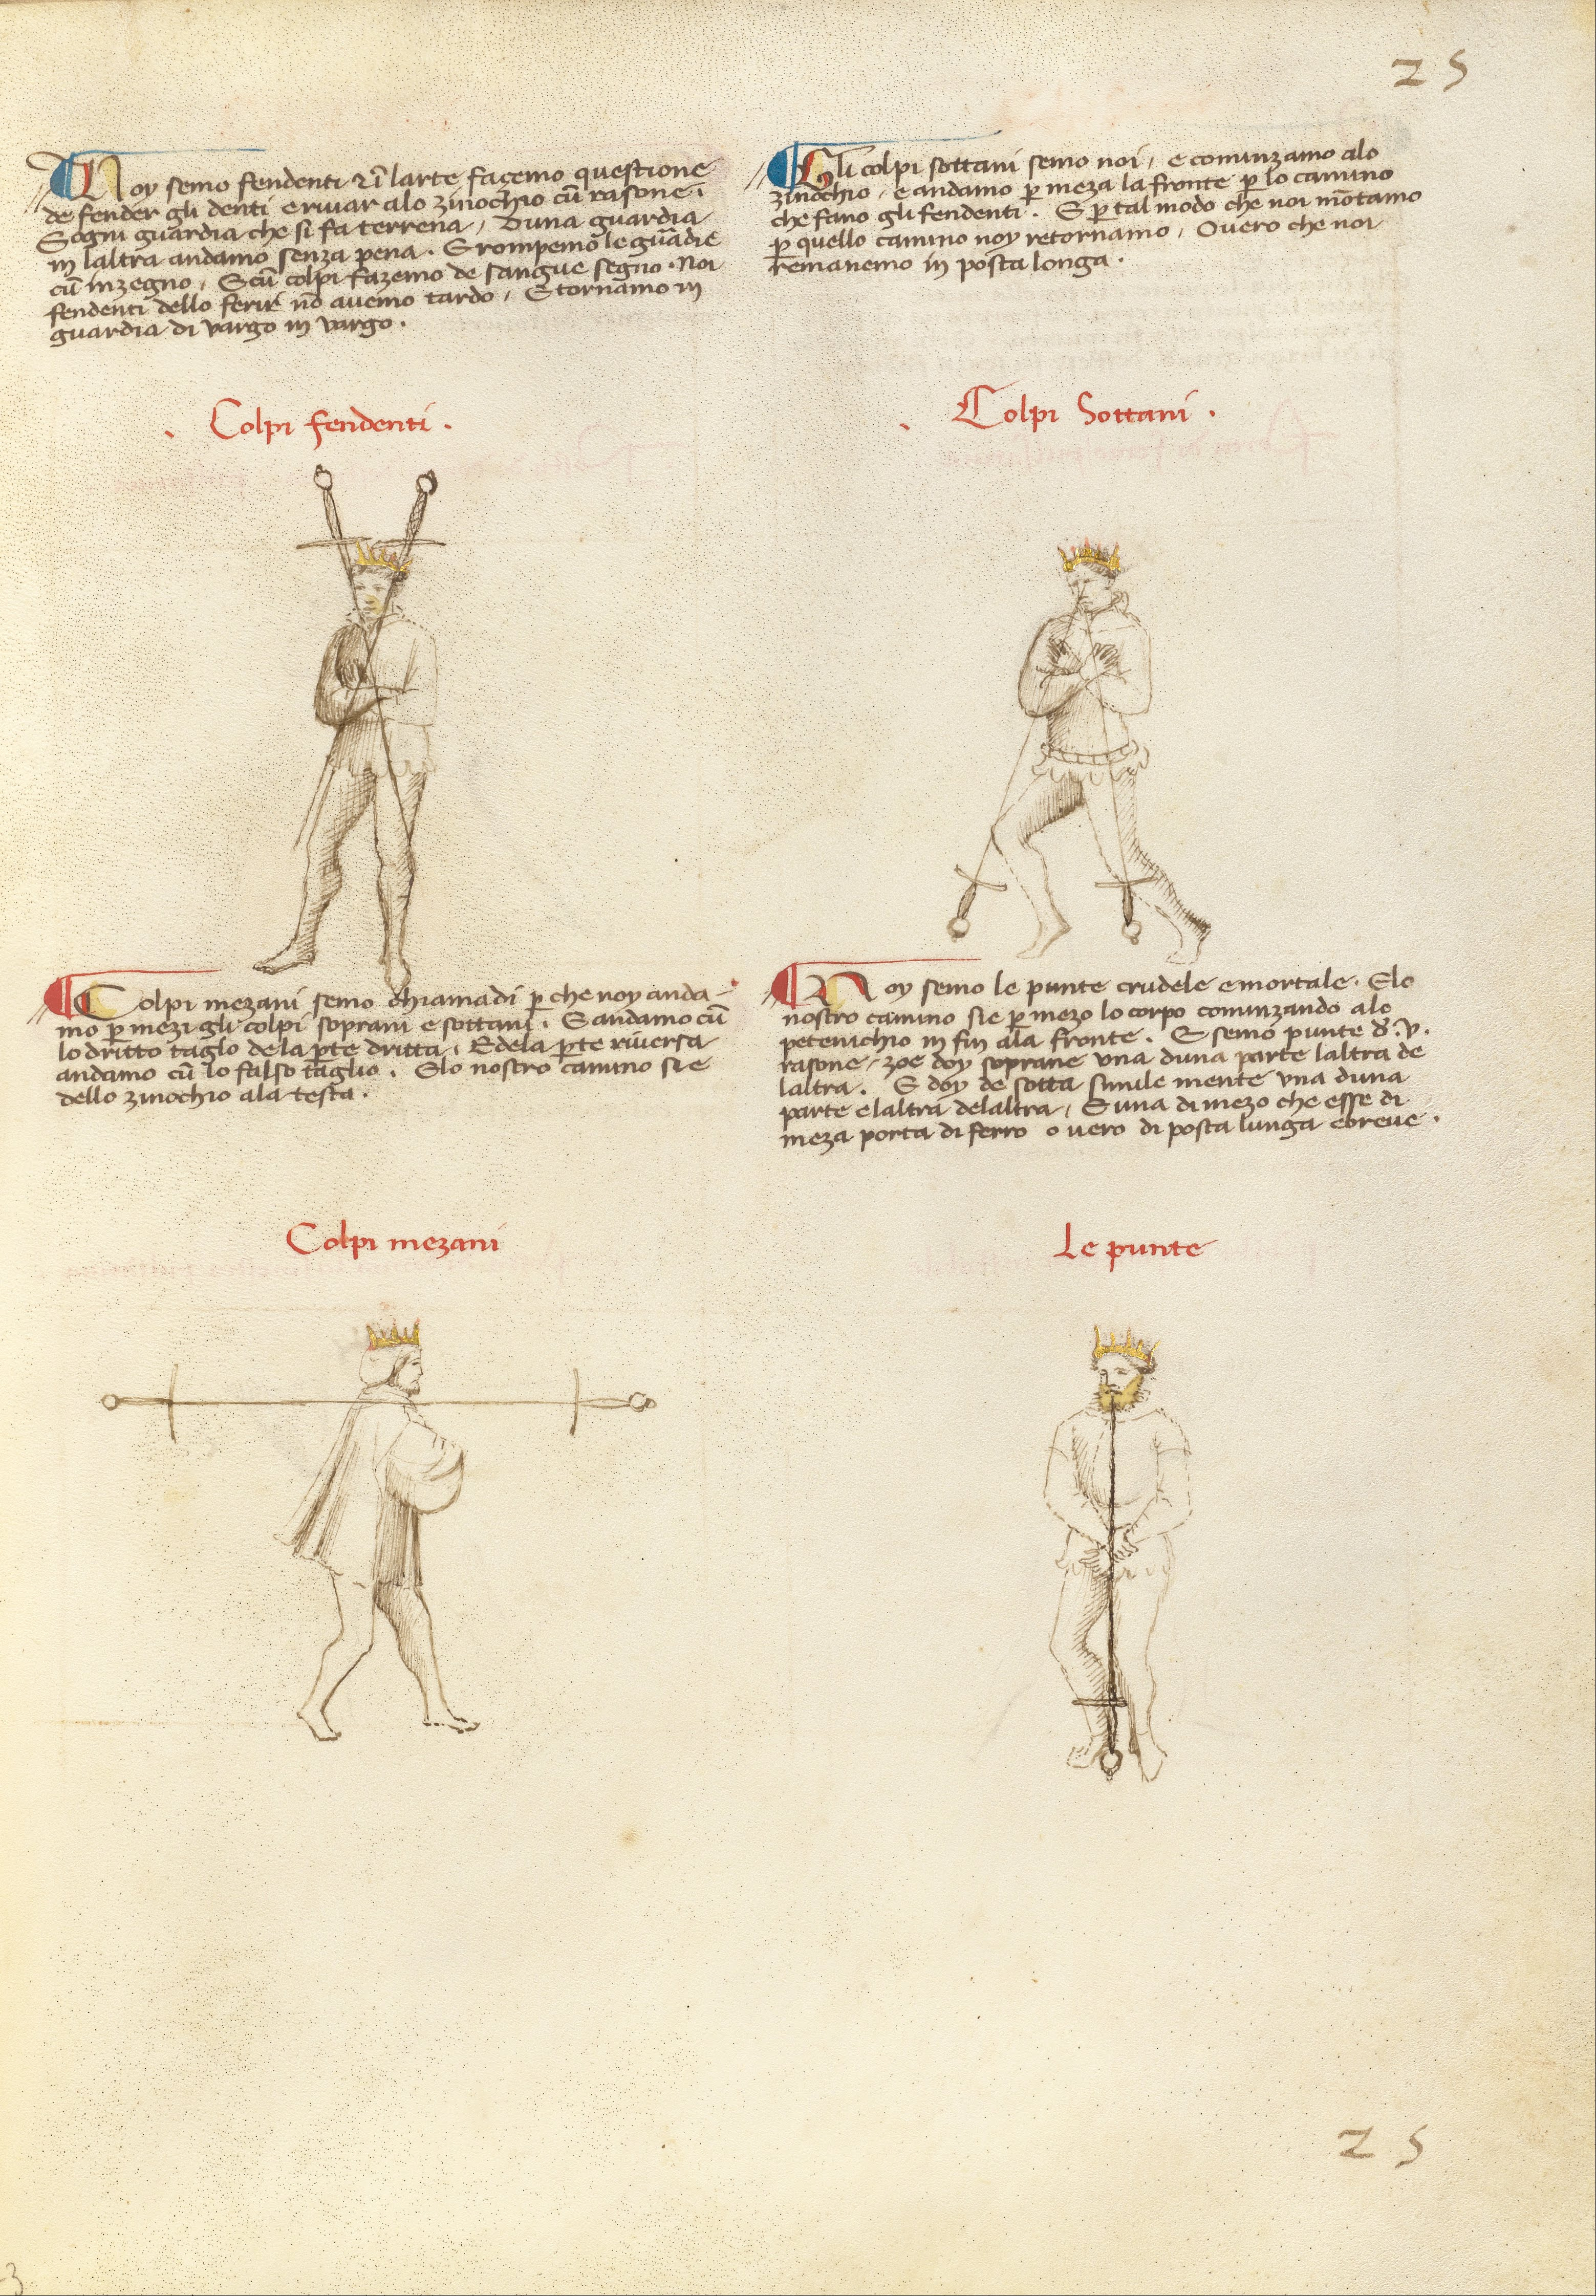 25
Noy semo fendenti ⁊ ī larte facemo questione
de fender gli denti e rivar alo zinochio cū rasone ī
E ogni guardia che si fa terrena, D una guardia
in laltra andamo senza pena. E rompemo le guardie
cū inzegno, E cū colpi fazemo de sangue segno. Noi
fendenti dello ferir nō avemo tardo, E tornamo in
guardia di vargo in vargo.
Colpi fendenti.
Gli colpi sottani semo noi, e cominzamo alo
zinochio, e andamo ꝑ meza la fronte ꝑ lo camino
che fano gli fendenti. E ꝑ tal modo che noi mōtamo
ꝑ quello camino noy retornamo, Overo che noi
remanemo in posta longa.
Colpi Sottani.
Colpi mezani semo chiamadi ꝑ che noy anda-
mo ꝑ mezi gli colpi soprani e sottani. E andamo cū
lo dritto taglo de la ꝑte dritta, E de la ꝑte riversa
andamo cū lo falso taglio. E lo nostro camino si e
dello zinochio ala testa.
Colpi mezani
Noy semo le punte crudele e mortale. E lo
nostro camino si e ꝑ mezo lo corpo cominzando alo
petenichio in fin ala fronte. E semo punte d̄ .v.
rasone, zoe doy soprane una duna parte laltra de
laltra. E doy de sotta simile mente una duna
parte e laltra de laltra, E una di mezo che esse di
meza porta di ferro o vero di posta lunga e breve.
Le punte
25